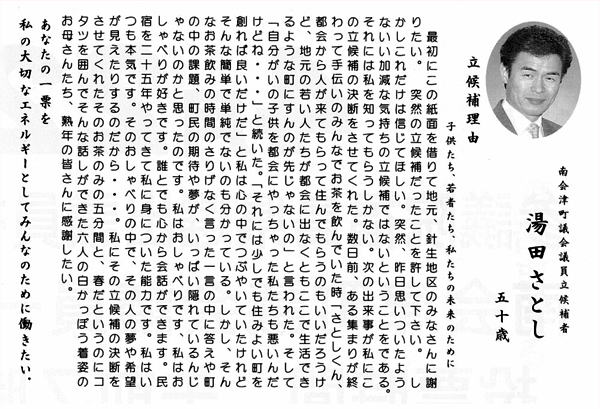 南会津町議会議員立候補者
湯田さとし
五十歳
立候補理由
子供たち、若者たち、私たちの未来のために
最初にこの紙面を借りて地元、針生地区のみなさんに謝
りたい。突然の立候補だったことを許して下さい。し
かしこれだけは信じてほしい。突然、昨日思いついたよう
ないい加減な気持ちの立候補ではないということをである。
それには私を知ってもらうしかない。次の出来事が私にこ
の立候補の決断をさせてくれた。数日前、ある集まりが終
わって手伝いのみんなでお茶を飲んでいた時「さとしくん、
都会から人が来てもらって住んでもらうのもいいだろうけ
ど、地元の若い人たちが都会に出なくともここで生活でき
るような町にすんのが先じゃないの」と言われた。そして
「自分がいの子供を都会にやっちゃった私たちも悪いんだ
けどね・・・」と続いた。「それには少しでも住みよい町を
創れば良いだけだ」と私は心の中でつぶやいていたけれど
そんな簡単で単純でないのも分かっている。しかし、そん
なお茶飲みの時間のさりげなく言った一言の中に答えや町
の中の課題、町民の期待や夢が、いっぱい隠れているんじ
ゃないのかと思ったのです。私はおしゃべりです、私はお
しゃべりが好きです。誰とでも心から会話ができます。民
宿を二十五年やってきて私に身についた能力です。私はい
つも本気です。そのおしゃべりの中で、その人の夢や希望
が見えたりするのだから・・・。私にその立候補の決断を
させてくれたそのお茶のみの五分間と、春だというのにコ
タツを囲んでそんな話しができた六人の白かっぽう着姿の
お母さんたち、熟年の皆さんに感謝したい。
あなたの一票を
私の大切なエネルギーとしてみんなのために働きたい。